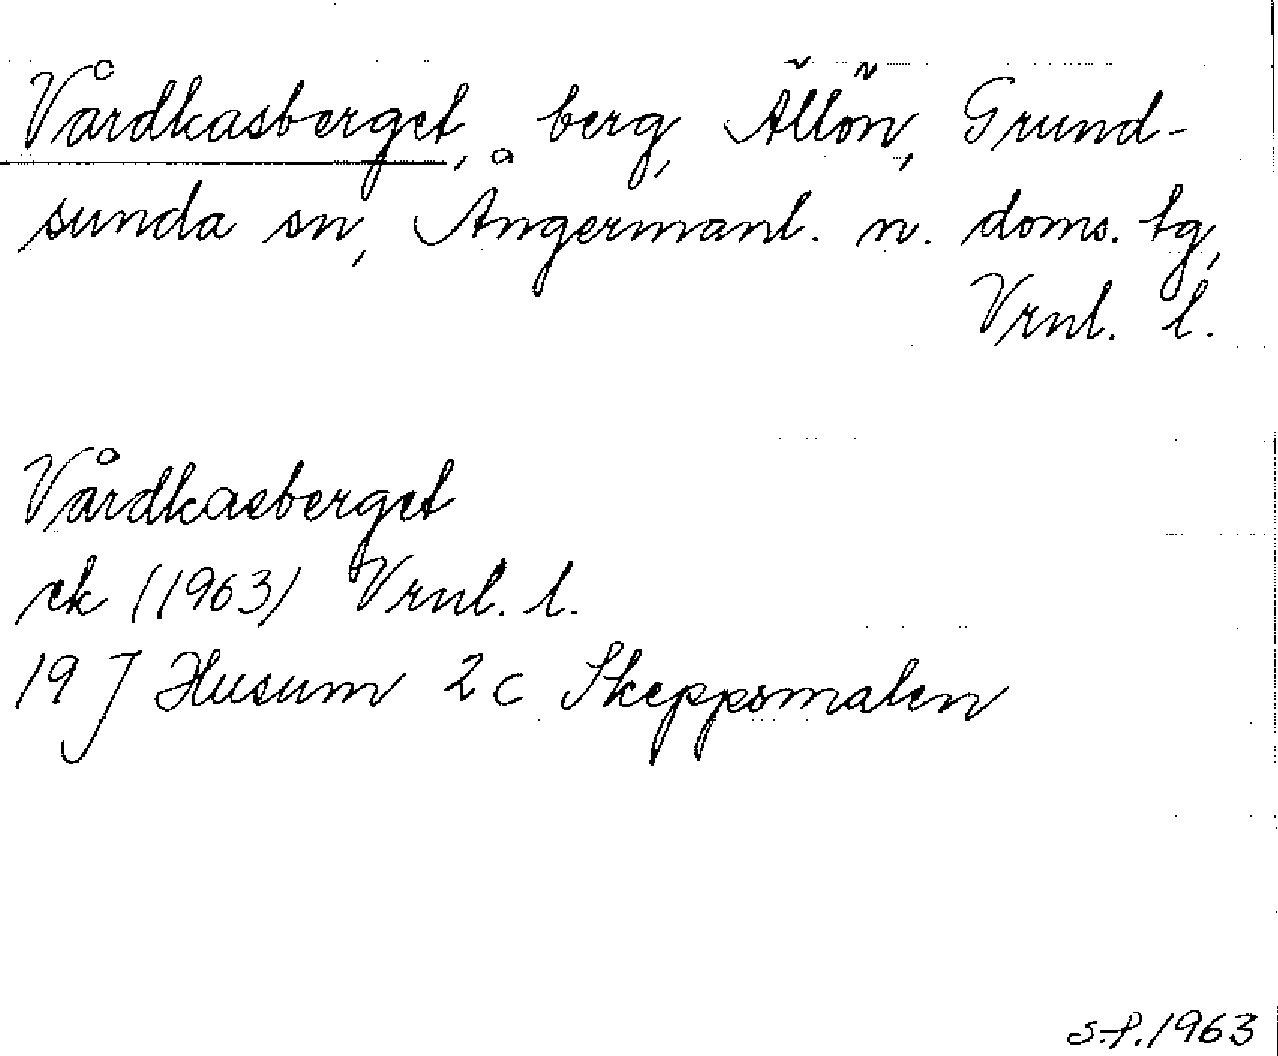 Vårdkasberget, berg, Ällön, Grund-
sunda sn, Ångermanl. n. doms. tg,
Vrnl. l.
Vårdkasberget
ek (1963) Vrnl. l.
19 J Husum 2c Skeppsmalen
S.P. 1963